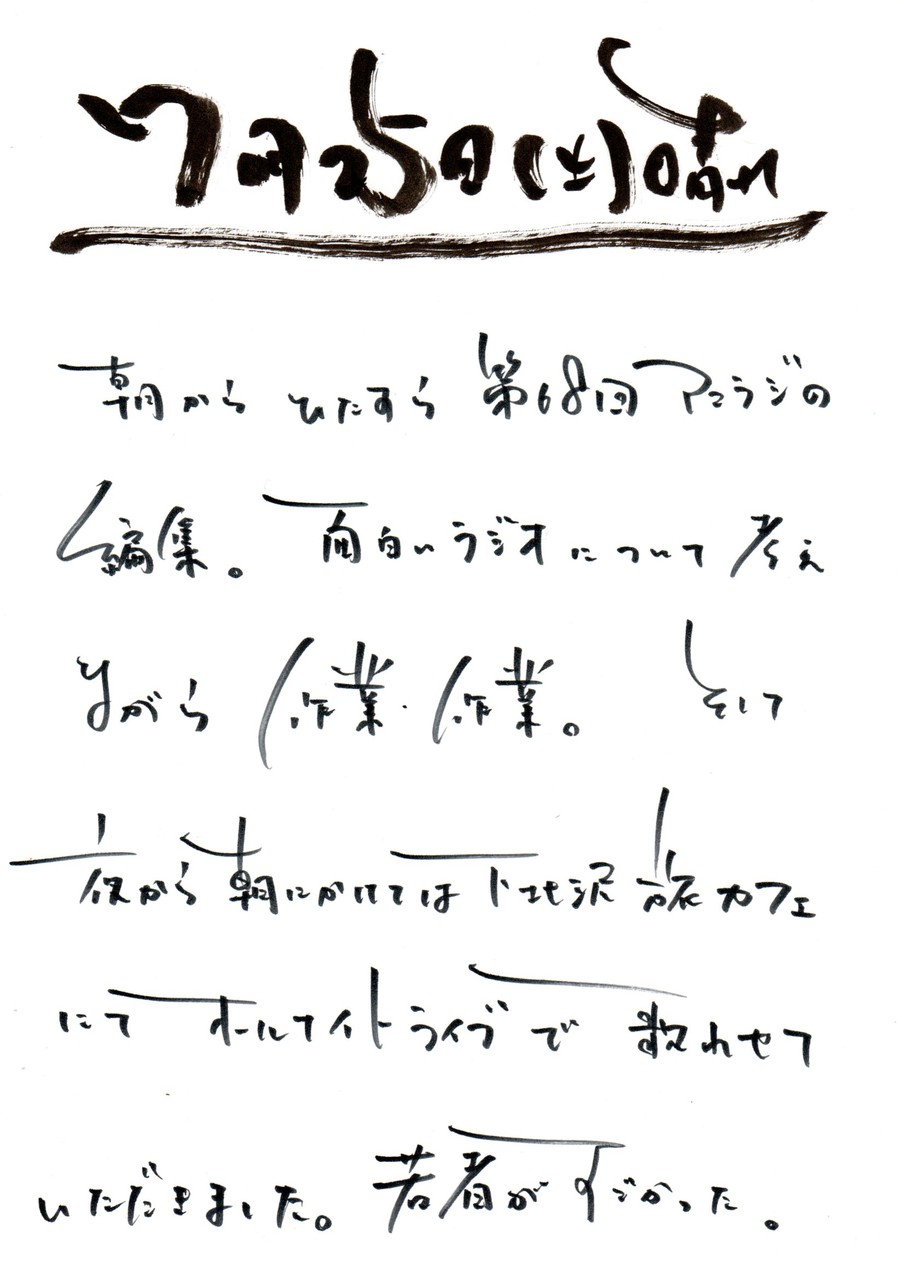 7月25日(土)晴れ
朝から ひたすら 第68回 アコラジの
編集。 面白いラジオ について 考え
ながら 作業・作業。 そして
夜から朝にかけては 下北沢 旅カフェ
にて オールナイトライブ で 歌わせて
いただきました。若者がすごかった。